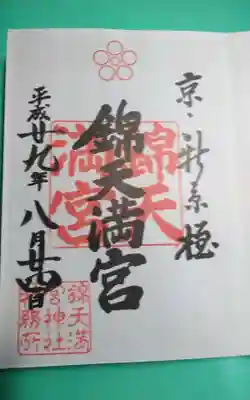 京・新京極
錦天満宮
錦天
満宮
平成廿九年八月廿四日
錦天満
宮神社
社務所